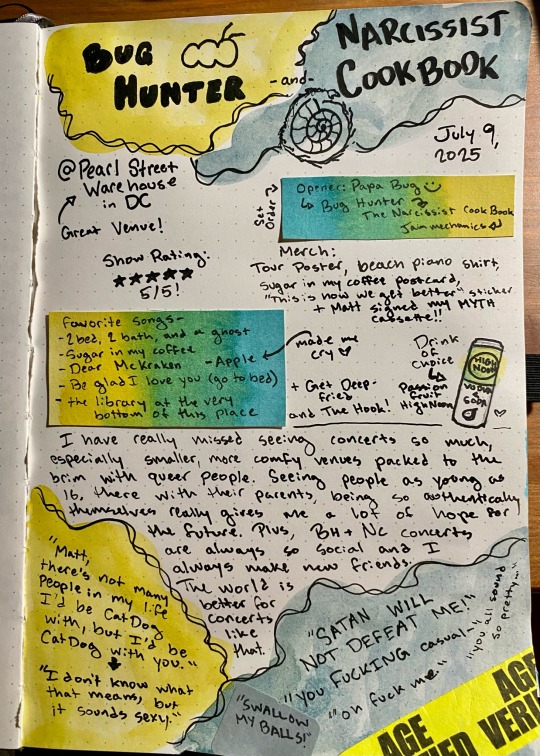 BUG
HUNTER
-and-
NARCISSIST
COOKBOOK
July 9,
2025
@Pearl Street
Warehouse
in DC
Great Venue!
Set
Order
Opener: Papa Bug
Bug Hunter
The Narcissist CookBook
Jain mechanics
Show Rating:
★★★★★
5/5!
Merch:
Tour Poster, beach piano shirt,
Sugar in my coffee postcard,
"This is how we get better" sticker
+ Matt signed my MYTH
cassette!!
Favorite songs-
-2 bed, 2 bath, and a ghost
-Sugar in my coffee
-Dear McKraken
-Apple
-Be glad I love you (go to bed)
-the library at the very
bottom of this place
made me
cry
+ Get Deep-
fried
and The Hook!
Drink
of
Choice
Passion
fruit
HighNoon
HIGH
NOON
VODKA
&
SODA
I have really missed seeing concerts so much,
especially smaller, more comfy venues packed to the
brim with queer people. Seeing people as young as
16, there with their parents, being so authentically
themselves really gives me a lot of hope for
the future. Plus, BH + NC concerts
are always so social and I
always make new friends.
The world is
better for
concerts
like
that.
"Matt,
there's not many
People in my life
I'd be CatDog
with, but I'd be
CatDog with you."
"I don't know what
that means, but
it sounds sexy."
"SATAN WILL
NOT DEFEAT ME!"
"you FUCKING casual-"
"oh fuck me"
"you all sound
so pretty..."
"SWALLOW
MY BALLS!"
AGE
AGE
VERI